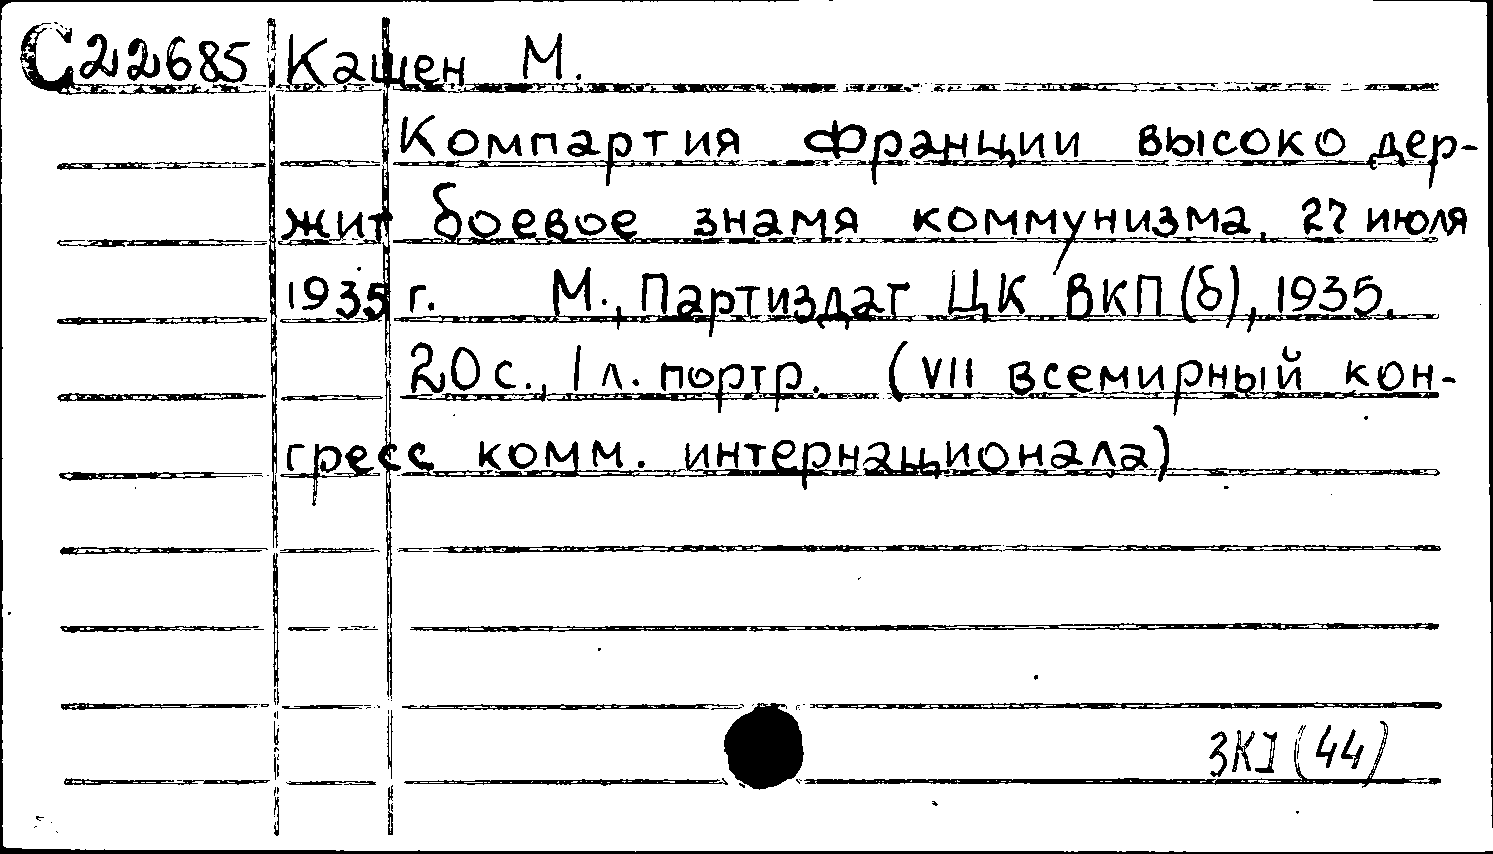 С22685 Кашен М.
Компартия Франции высоко дер-
жит боевое знамя коммунизма. 27 июля
1935 г. М., Партиздат ЦК ВКП(б), 1935.
20 с., 1 л. портр. (VII всемирный кон-
гресс комм. интернационала)
3КI(44)